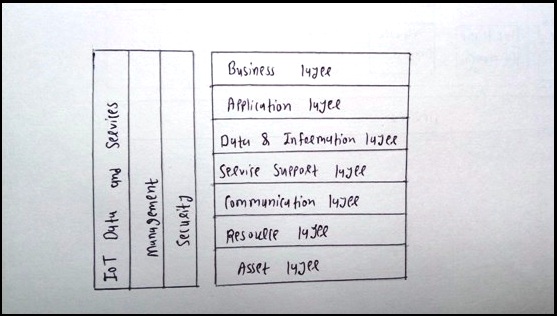 IoT Data and Services
Management
Security
Business layer
Application layer
Data & Information layer
Service Support layer
Communication layer
Resource layer
Asset layer